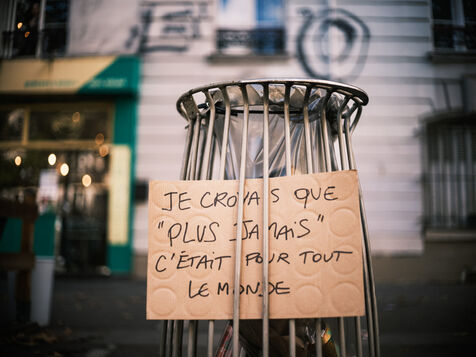 JE CROYAIS QUE
"PLUS JAMAIS"
C'ÉTAIT POUR TOUT
LE MONDE